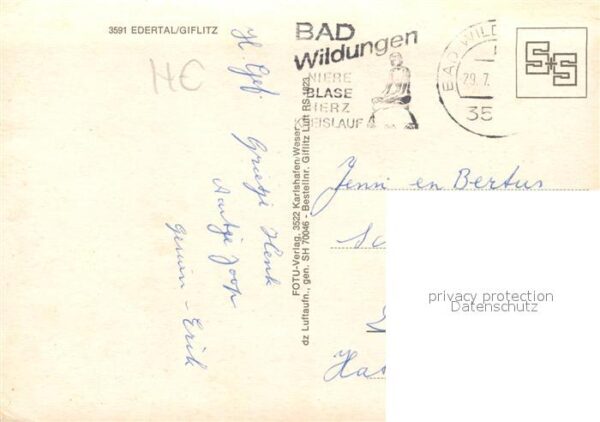 3591 EDERTAL/GIFLITZ
HC
BAD
Wildungen
NIERE
BLASE
HERZ
KREISLAUF
BAD WILD
29. 7.
35
S+S
H. Gef.
Grietje Henk
Aartje Joop
Gerwin - Erik
FOTU-Verlag, 3522 Karlshafen/Weser
dz Luftaufn., gen. SH 70046 - Bestellnr. Giflitz Luft RS 1823
Jenni en Bertus
privacy protection
Datenschutz